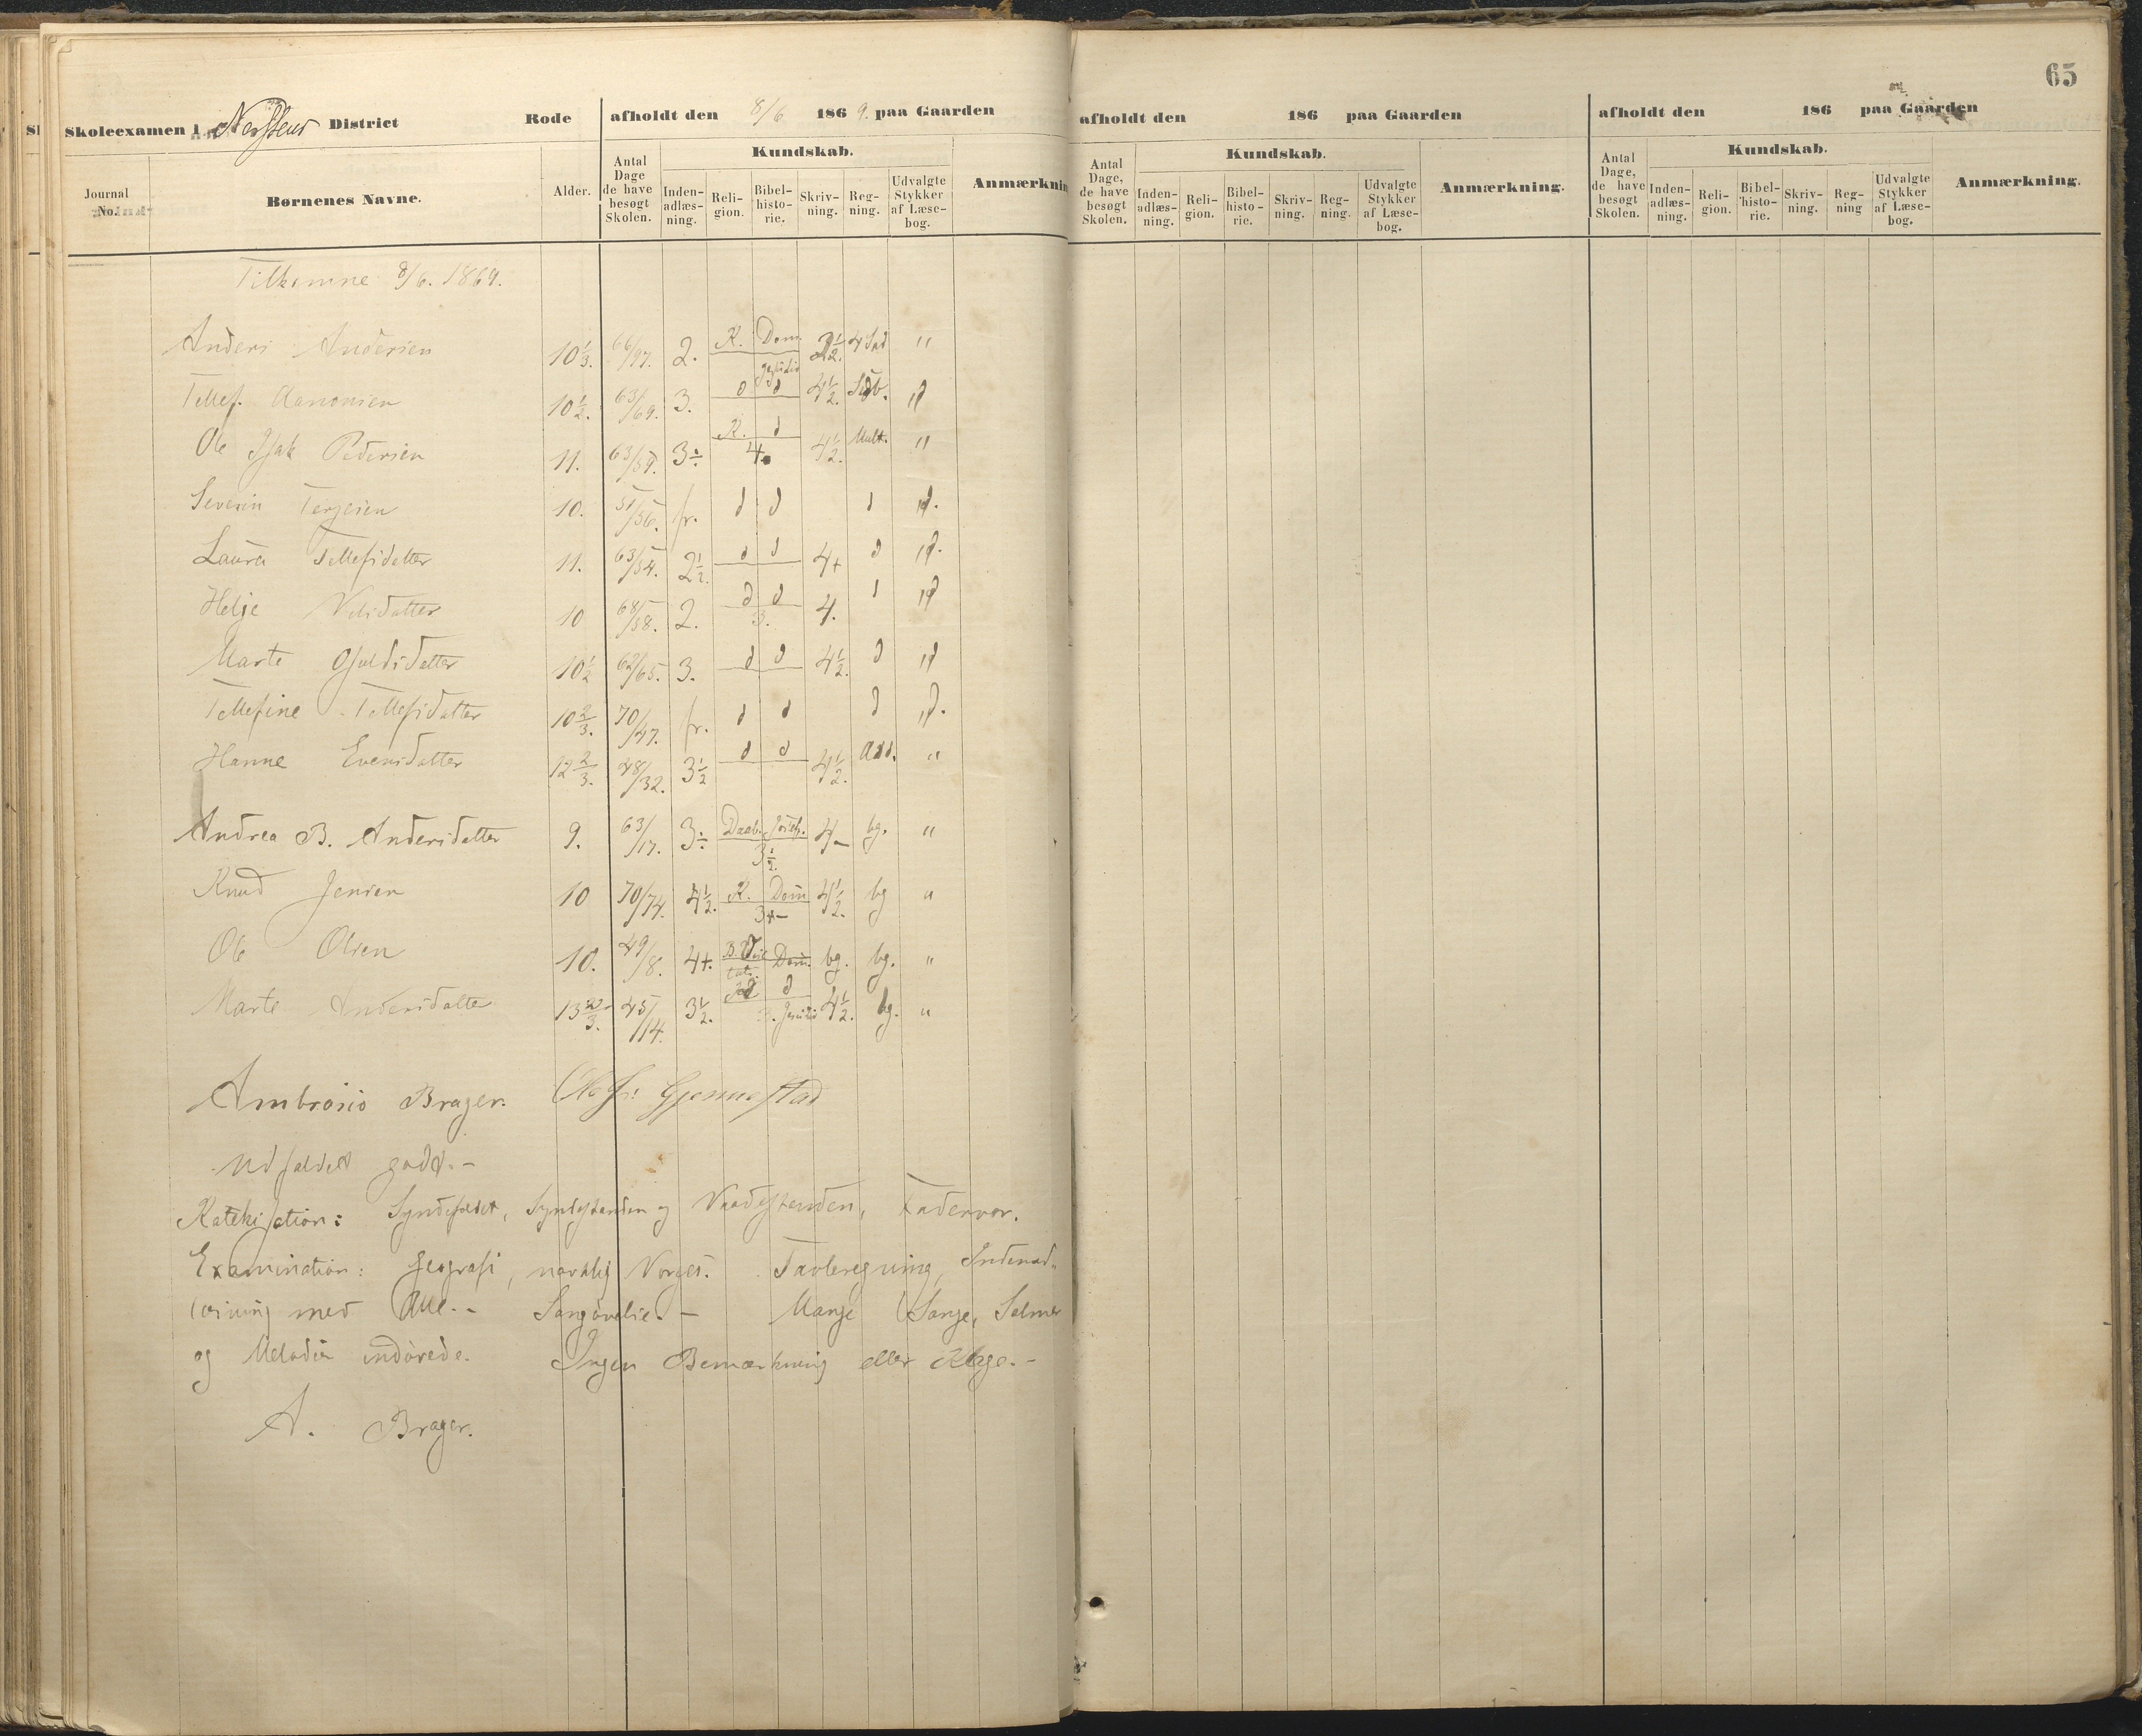 65
Skoleexamen i District Rode afholdt den 8/6 1869. paa Gaarden
afholdt den 186 paa Gaarden
afholdt den 186 paa Gaarden
Journal No. Børnenes Navne. Alder. Antal Dage de have besøgt Skolen. Kundskab. Inden-adlæs-ning. Reli-gion. Bibel-histo-rie. Skriv-ning. Reg-ning. Udvalgte Stykker af Læse-bog. Anmærknin
Antal Dage, de have besøgt Skolen. Kundskab. Inden-adlæs-ning. Reli-gion. Bibel-histo-rie. Skriv-ning. Reg-ning. Udvalgte Stykker af Læse-bog. Anmærkning.
Antal Dage, de have besøgt Skolen. Kundskab. Inden-adlæs-ning. Reli-gion. Bibel-histo-rie. Skriv-ning. Reg-ning Udvalgte Stykker af Læse-bog. Anmærkning.
Tilkomne 8/6. 1869.
Anders Andersen 10 1/3. 66/97. 2. K. Dom. 4 "
Tellef Aanonsen 10 1/2. 63/69. 3. d d 4 1/2. Sub. "d
Ole Isak Pedersen 11. 63/59. 3÷ K. d 4. 4 1/2. Mult. "
Severin Terjesen 10. 51/56. fr. d d d "d.
Laura Tellefsdatter 11. 63/54. 2 1/2. d d 4+ d "d.
Helje Nilsdatter 10 68/58. 2. d d 3. 4. d "d
Marte Osuldsdatter 10 1/2 62/65. 3. d d 4 1/2. d "d
Tellefine Tellefsdatter 10 2/3. 70/47. fr. d d d "d.
Hanne Evensdatter 12 2/3. 48/32. 3 1/2 d d 4 1/2. Add. "
Andrea B. Andersdatter 9. 63/17. 3÷ Daab. Josef. 3 1/2. 4- bg. "
Knud Jensen 10 70/74. 4 1/2. K. Dom 4 1/2. bg "
Ole Olsen 10. 49/8. 4+. Dom. bg. bg. "
Marte Andersdatter 13 2/3. 45/14. 3 1/2. d 4 1/2. bg. "
Ambrosio Brager. Ole Gjennestad
Udfaldet godt.-
Katekisation: Syndefaldet, Syndestanden og Naadestanden, Fadervor.
Examination: Geografi, navnlig Norges. Tavleregning, Indenad-
læsning med Alle.- Sangøvelse.- Mange Sange, Salmer
og Melodier indøvede. Ingen Bemærkning eller Klage.-
A. Brager.